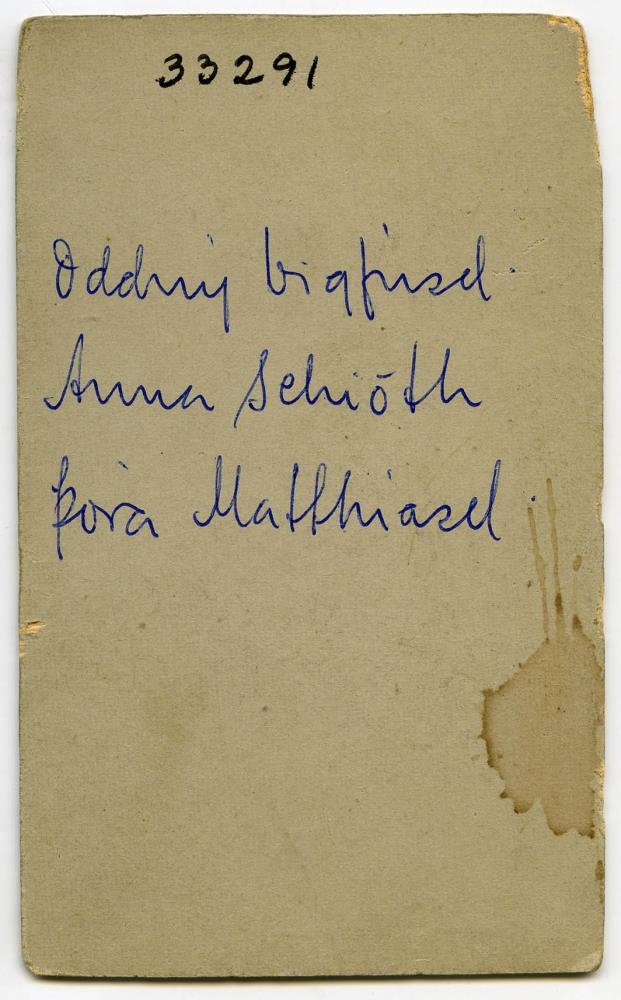 33291
Oddný Vigfúsd.
Anna Schiöth
Þóra Matthíasd.